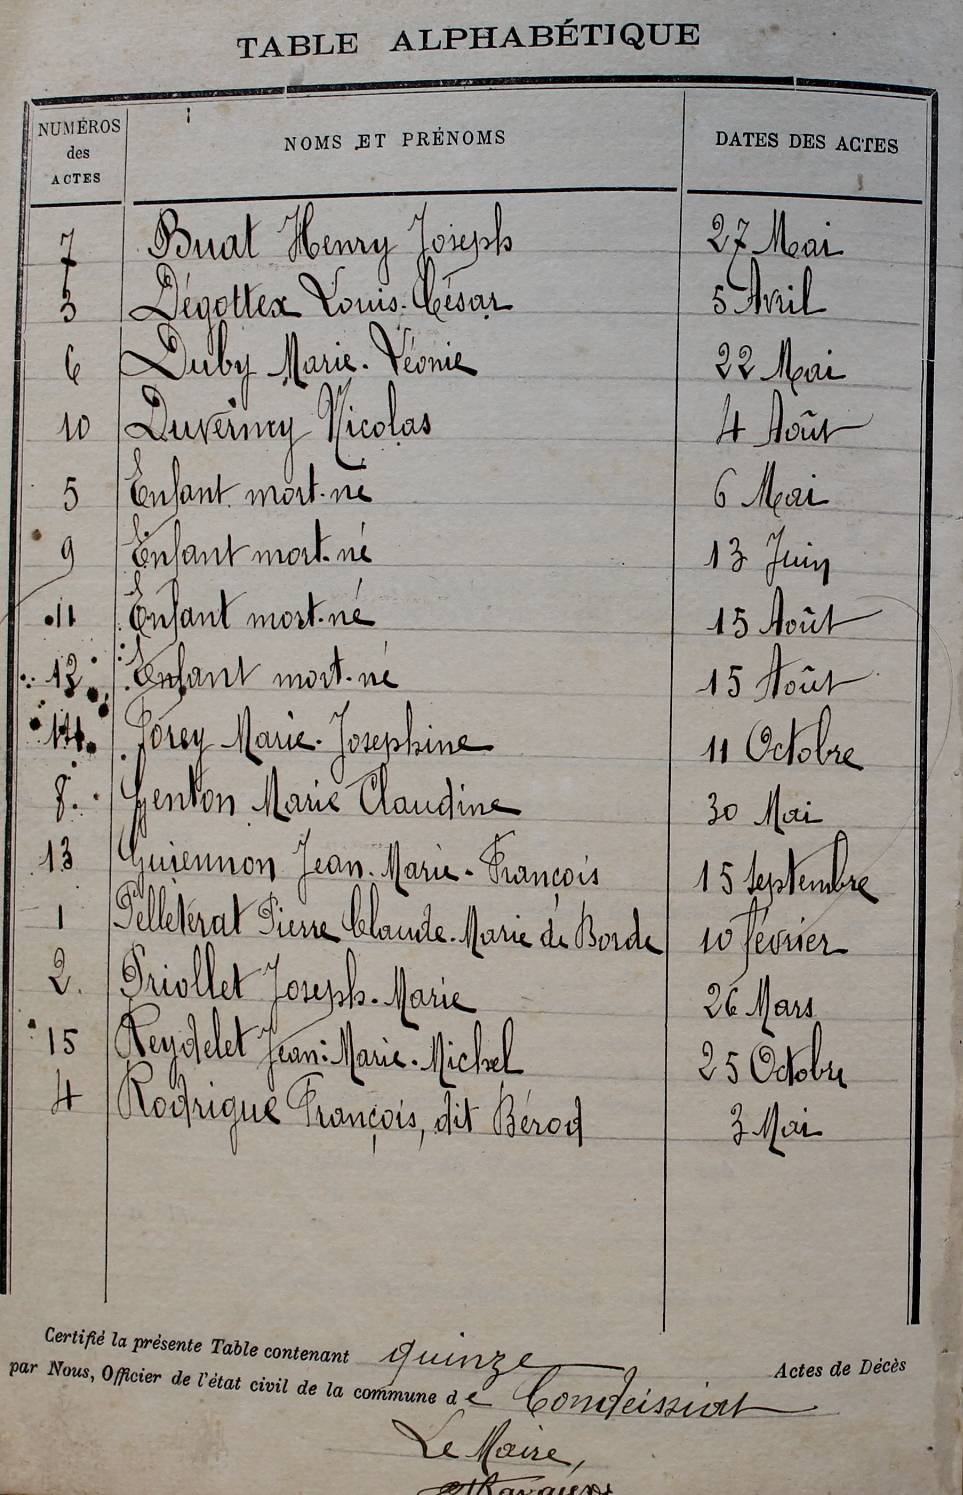 TABLE ALPHABÉTIQUE
NUMÉROS des ACTES NOMS ET PRÉNOMS DATES DES ACTES
7 Buat Henry Joseph 27 Mai
3 Dégottex Louis-César 5 Avril
6 Duby Marie-Léonie 22 Mai
10 Duverney Nicolas 4 Août
5 Enfant mort-né 6 Mai
9 Enfant mort-né 13 Juin
11 Enfant mort-né 15 Août
12 Enfant mort-né 15 Août
14 Forey Marie-Josephine 11 Octobre
8. Genton Marie Claudine 30 Mai
13 Guiennon Jean-Marie-François 15 Septembre
1 Pelleterat Pierre Claude-Marie de Borde 10 février
2. Priollet Joseph-Marie 26 Mars
15 Reydelet Jean-Marie-Michel 25 Octobre
4 Rodrigue François, dit Bérod 3 Mai
Certifié la présente Table contenant quinze Actes de Décès
par Nous, Officier de l'état civil de la commune de Condeissiat
Le Maire,